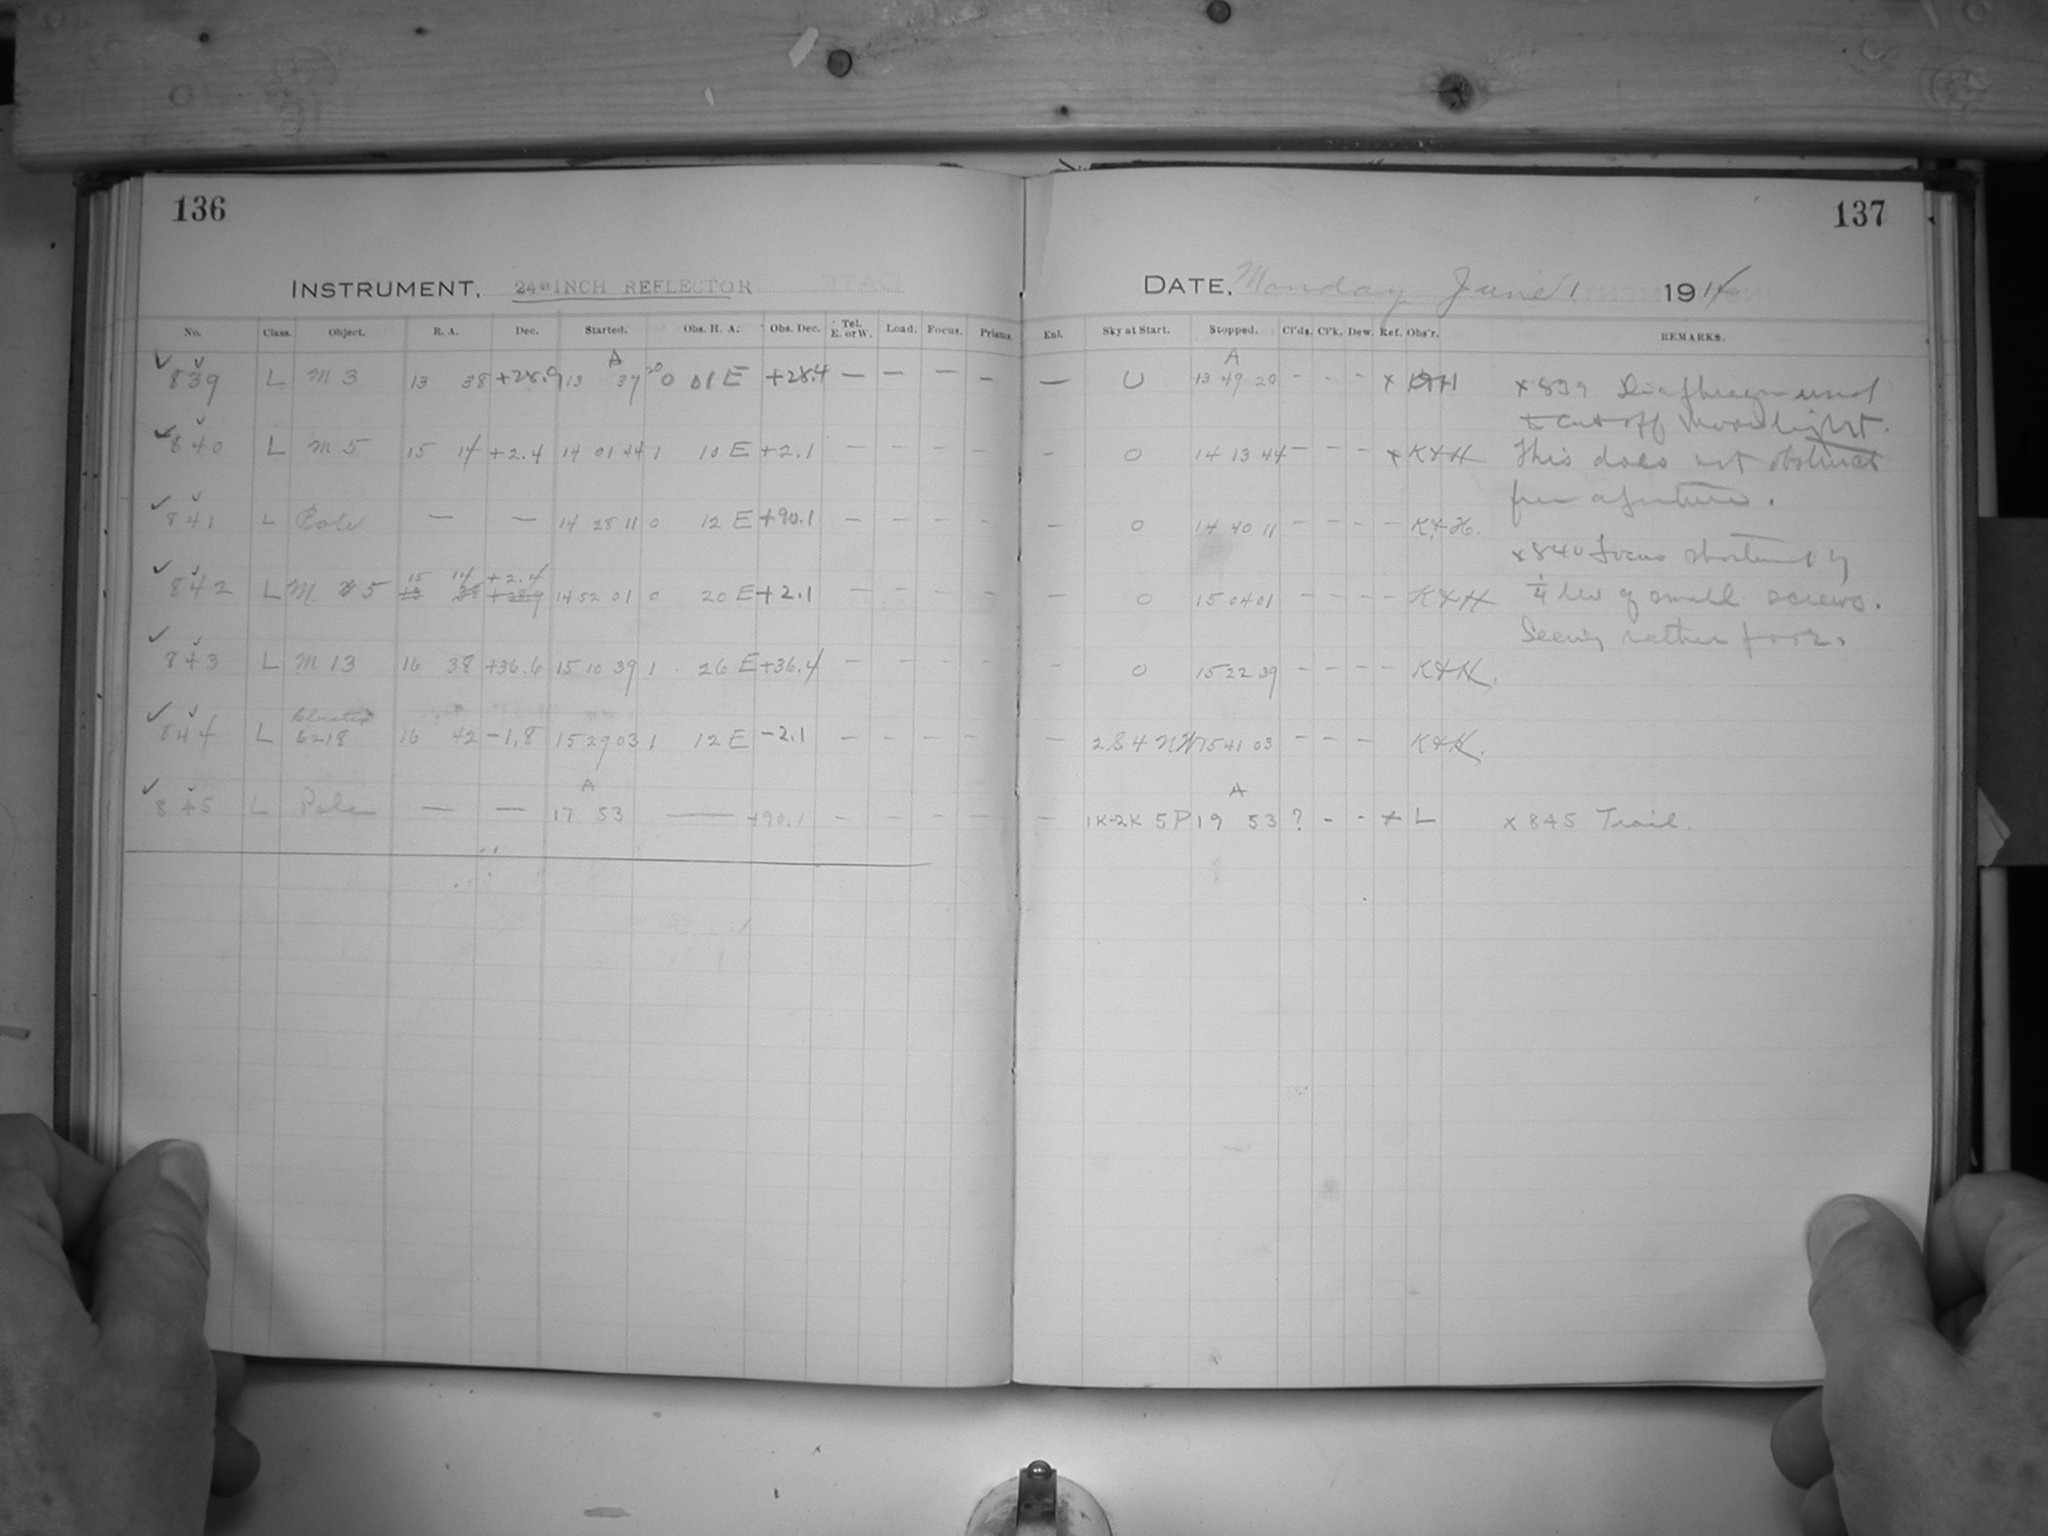 136
137
INSTRUMENT. 24" INCH REFLECTOR
DATE. Monday June 1 1914
No. Class. Object. R. A. Dec. Started. Obs. H. A. Obs. Dec. Tel. E. or W. Load. Focus. Prisms. Enl. Sky at Start. Stopped. Cl'ds. Cl'k. Dew. Ref. Obs'r. REMARKS.
839 L M 3 13 38 +28.9 A 13 37 20 0 01 E +28.4 — — — — — 0 A 13 49 20 - - - x K+H x 839 Diaphragm used
to cut off Moonlight.
840 L M 5 15 14 +2.4 14 01 44 1 10 E +2.1 — — — — — 0 14 13 44 — — — x K+H This does not obstruct
free aperture.
841 L Pole — — 14 28 11 0 12 E +90.1 — — — — — 0 14 40 11 - - - - K+H.
x 840 Focus shortened by
842 L M 5 15 14 +2.4 14 52 01 0 20 E +2.1 — — — — — 0 15 04 01 - - - - K+H 1/4 of small screws.
Seeing rather poor.
843 L M 13 16 38 +36.6 15 10 39 1 26 E +36.4 — — — — — 0 15 22 39 — — — — K+H.
844 L Cluster 6218 16 42 -1.8 15 29 03 1 12 E -2.1 — — — — — 2 S 4 NW 15 41 03 - - - K+H.
845 L Pole — — A 17 53 — +90.1 - - - - - 1K-2K 5P A 19 53 ? - - x L x 845 Trail.